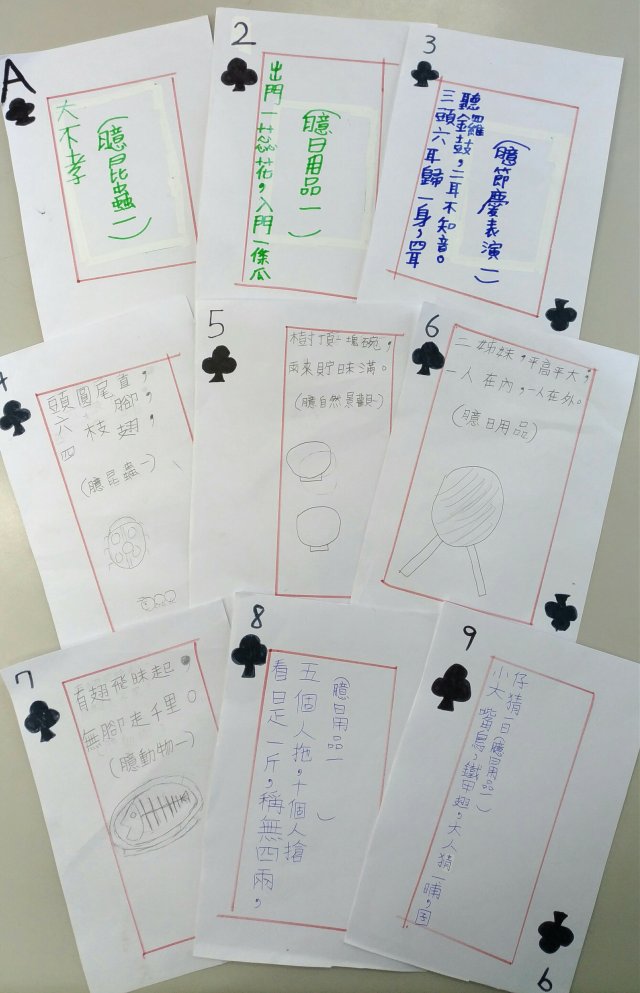 A
大不孝
(臆昆蟲一)
2
出門一蕊花，入門一條瓜
(臆日用品一)
3
三頭六耳歸一身，四耳
聽鑼鼓，二耳不知音。
(臆節慶表演一)
4
頭圓尾直，
六 腳，
四 枝 翅，
(臆昆蟲一)
5
樹頂一塊碗，
雨來貯昧滿。
(臆自然景觀一)
6
二姊妹，平高平大，
一人在內，一人在外。
(臆日用品)
7
有翅飛昧起，
無腳走千里。
(臆動物一)
8
看是一斤，稱無四兩，
五個人拖，十個人搶
(臆日用品一)
9
小大嘴鳥，鐵甲翅，大人猜一晡，囡
仔猜一日(臆日用品一)
9